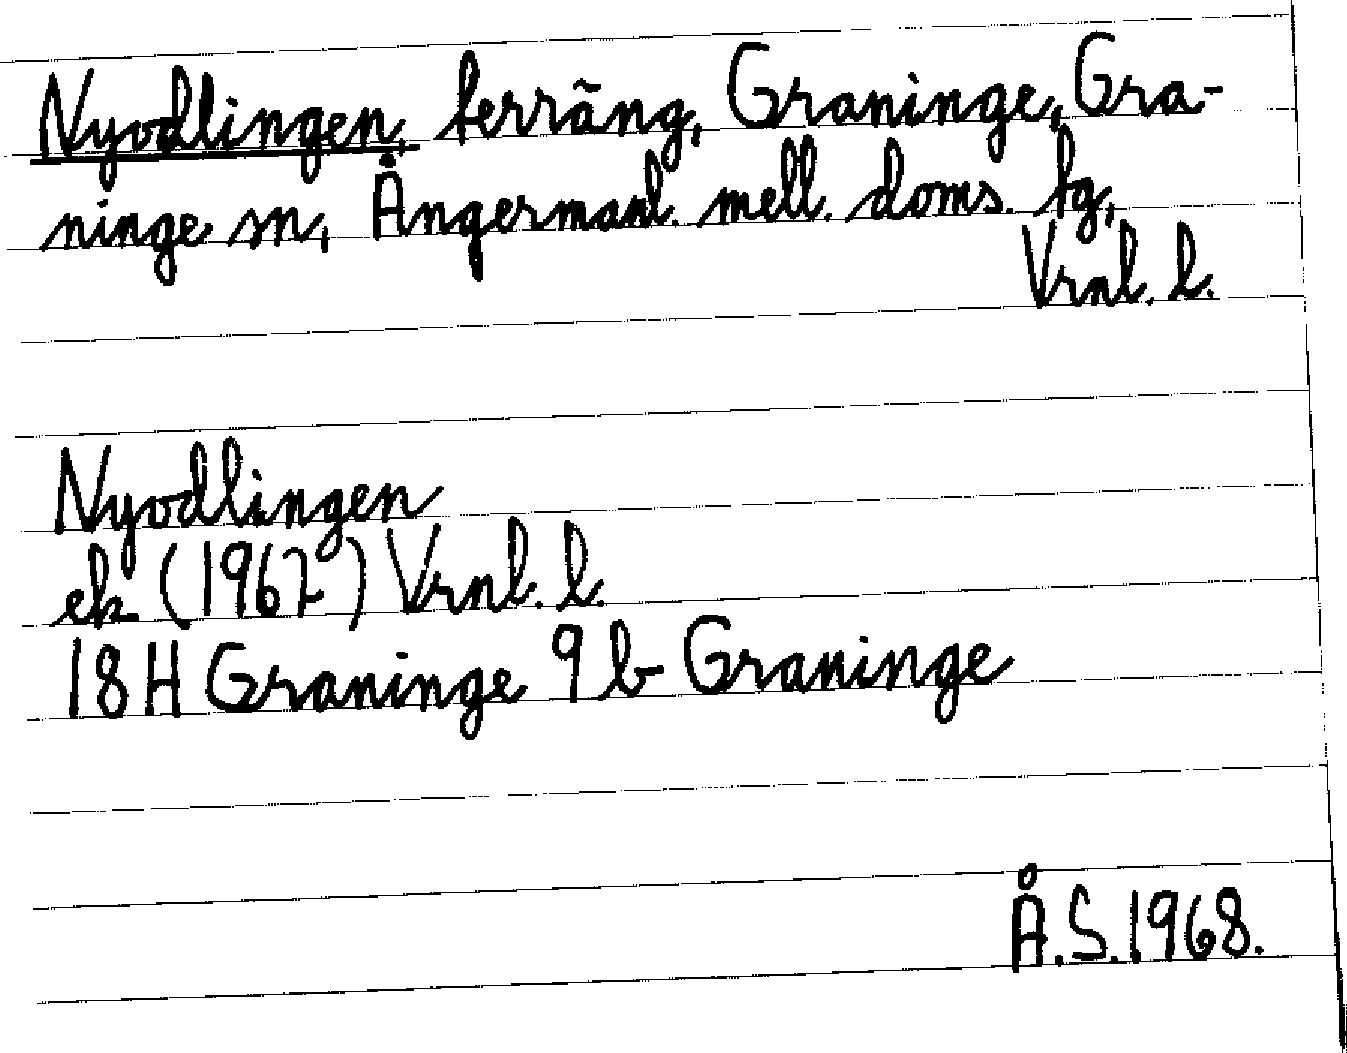 Nyodlingen, terräng, Graninge, Gra-
ninge sn, Ångermanl. mell. doms. tg,
Vrnl. l.
Nyodlingen
ek (1967) Vrnl. l.
18H Graninge 9 b Graninge
Å.S.1968.